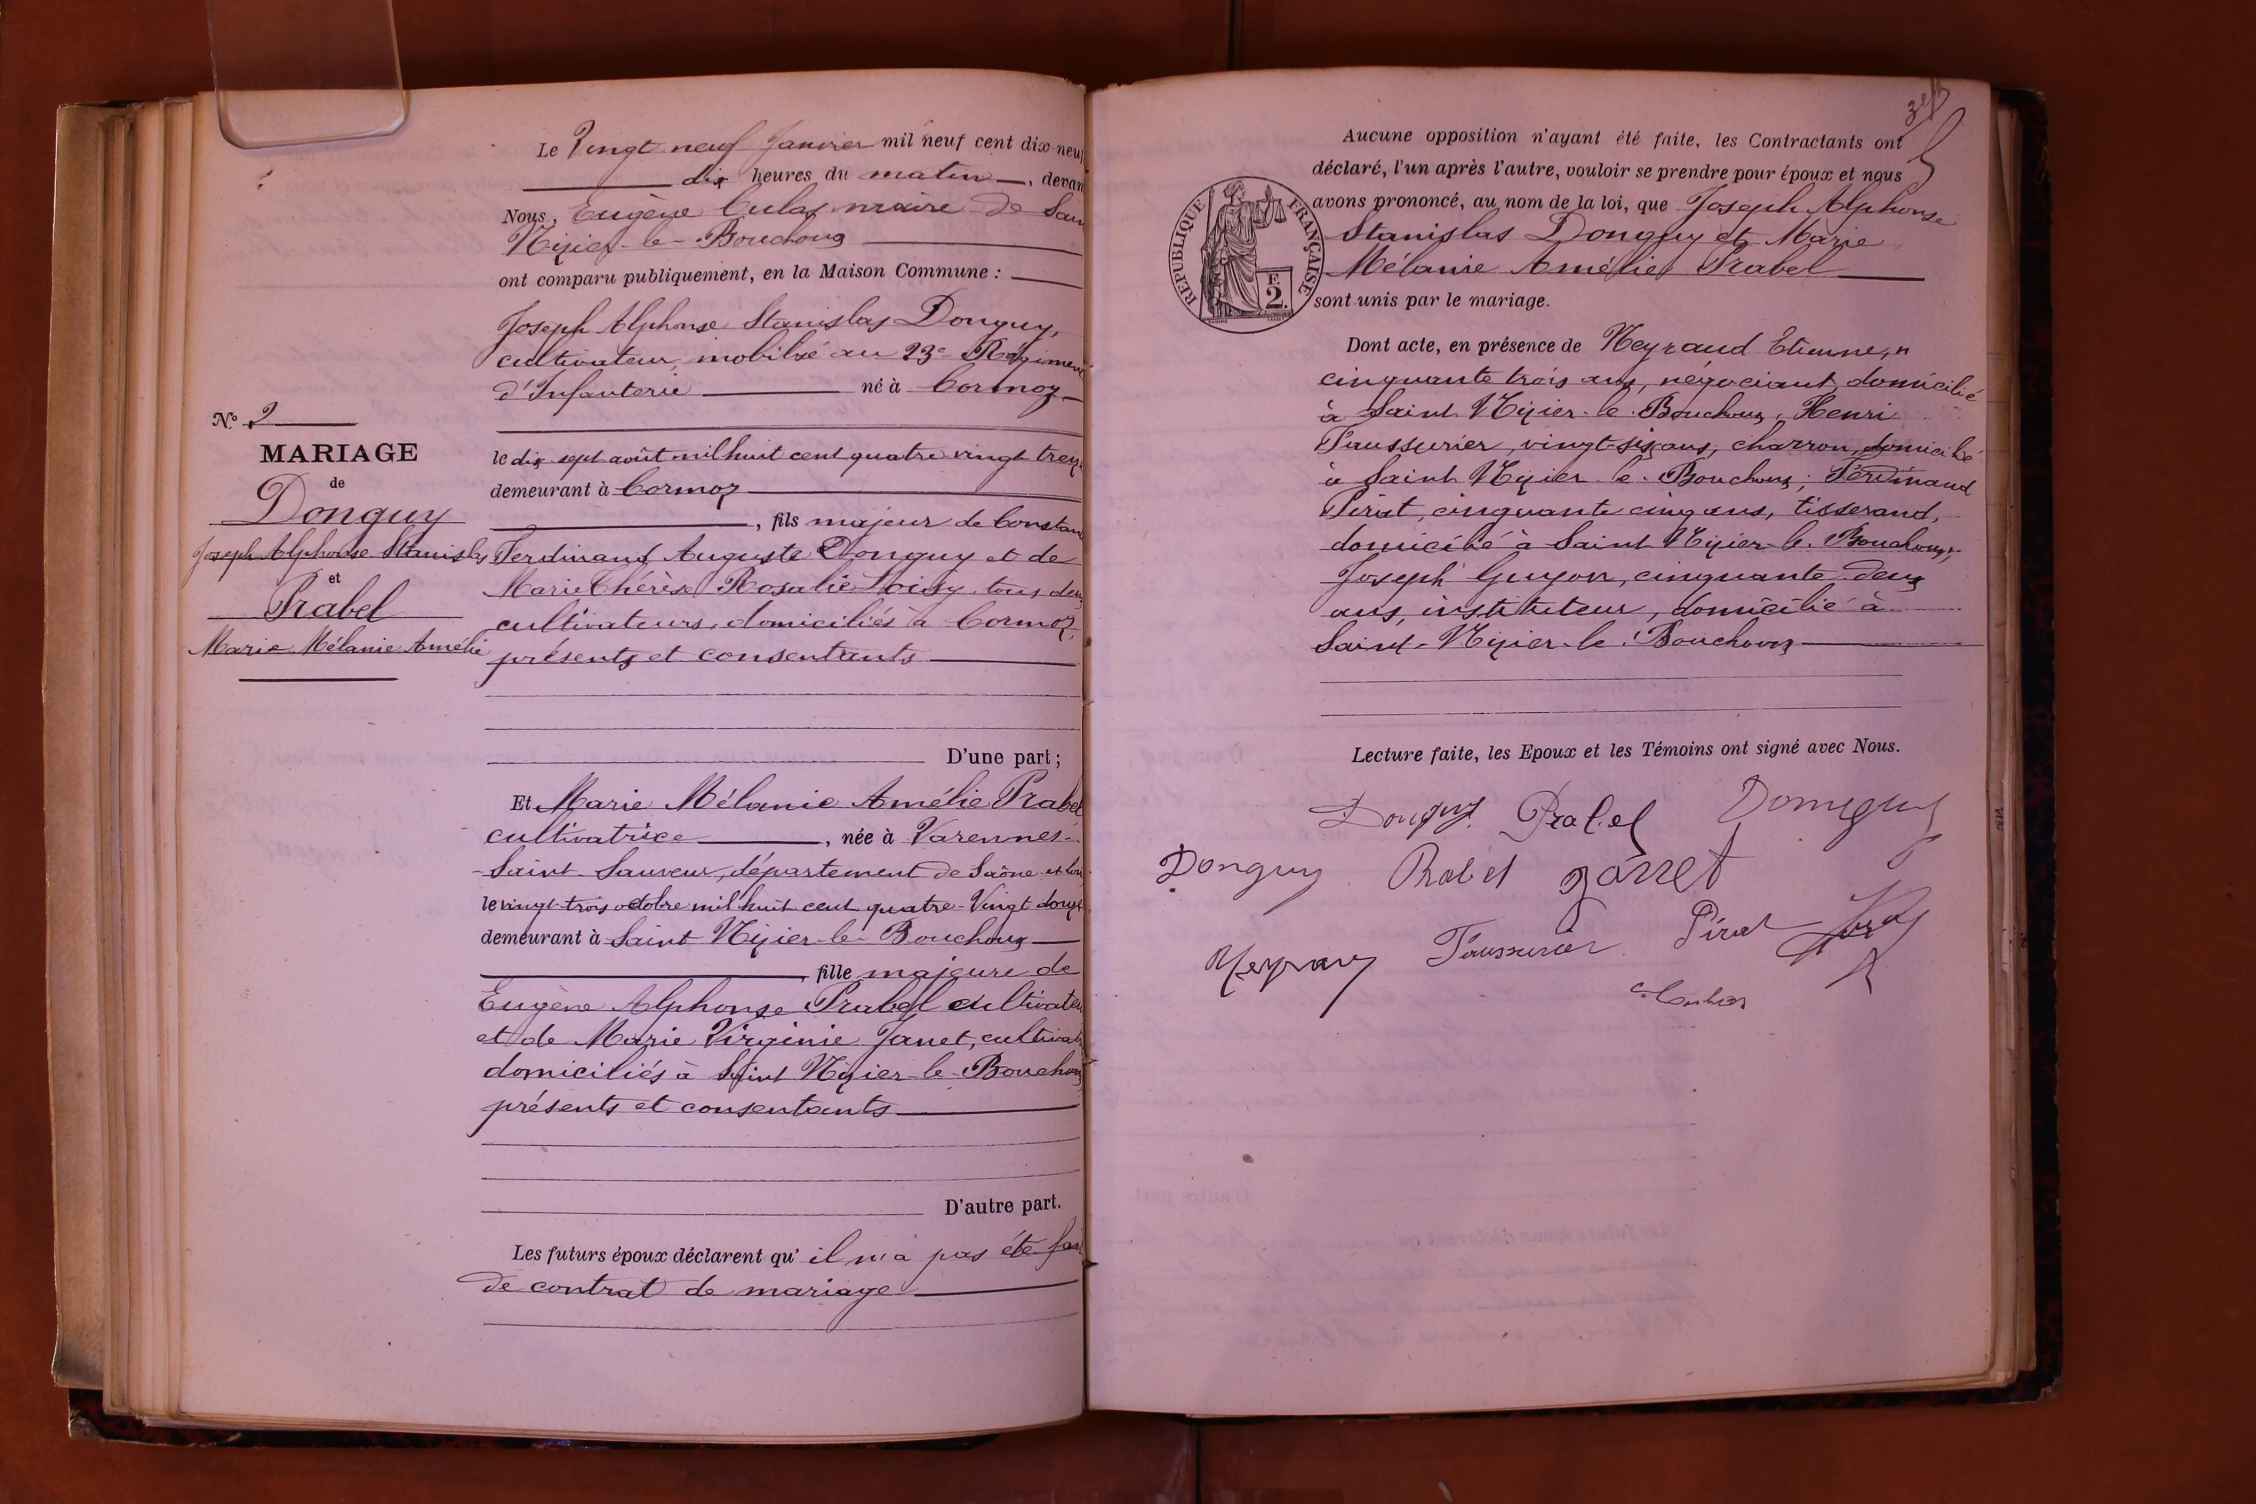 Le Vingt neuf Janvier mil neuf cent dix-neuf
dix heures du matin, devan
Nous, Eugène Culas maire de Sain
Nizier-le-Bouchoux
ont comparu publiquement, en la Maison Commune :
Joseph Alphonse Stanislas Donguy,
cultivateur, mobilisé au 23e Régiment
d'Infanterie né à Cormoz
le dix sept août mil huit cent quatre vingt treiz
demeurant à Cormoz
, fils majeur de Constan
Ferdinand Auguste Donguy et de
Marie Thérèse Rosalie Loisy tous deux
cultivateurs, domiciliés à Cormoz,
présents et consentants
N° 2
MARIAGE
de
Donguy
Joseph Alphonse Stanislas
et
Prabel
Marie Mélanie Amélie
D'une part ;
Et Marie Mélanie Amélie Prabel
cultivatrice, née à Varennes-
Saint Sauveur, département de Saône et Loire
le vingt-trois octobre mil huit cent quatre-Vingt douze
demeurant à Saint Nizier-le-Bouchoux
, fille majeure de
Eugène Alphonse Prabel cultivateu
et de Marie Virginie Janet, cultivat
domiciliés à Saint Nizier-le-Bouchoux
présents et consentants
D'autre part.
Les futurs époux déclarent qu' il n'a pas été fait
de contrat de mariage
Aucune opposition n'ayant été faite, les Contractants ont
déclaré, l'un après l'autre, vouloir se prendre pour époux et nous
avons prononcé, au nom de la loi, que Joseph Alphonse
Stanislas Donguy et Marie
Mélanie Amélie Prabel
sont unis par le mariage.
REPUBLIQUE FRANÇAISE
F.
2.
Dont acte, en présence de Neyraud Etienne,
cinquante trois ans, négociant, domicilié
à Saint Nizier-le-Bouchoux, Henri
Faussurier, vingt-six ans, charron, domicilié
à Saint Nizier le-Bouchoux; Ferdinand
Pirat, cinquante cinq ans, tisserand,
domicilié à Saint Nizier-le-Bouchoux,
Joseph Guyon, cinquante deux
ans, instituteur, domicilié à
Saint-Nizier-le-Bouchoux
Lecture faite, les Epoux et les Témoins ont signé avec Nous.
Donguy Prabel Donguy
Donguy Prabel
Neyraud Faussurier Pirat